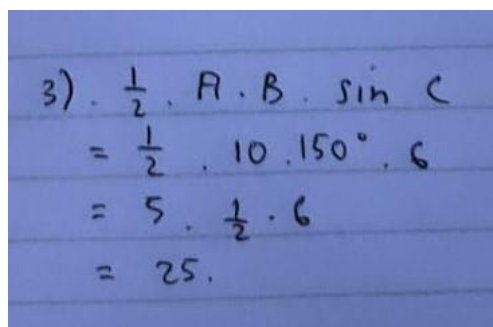 3). 1/2 . A . B . sin C
= 1/2 . 10 . 150° . 6
= 5 . 1/2 . 6
= 25.